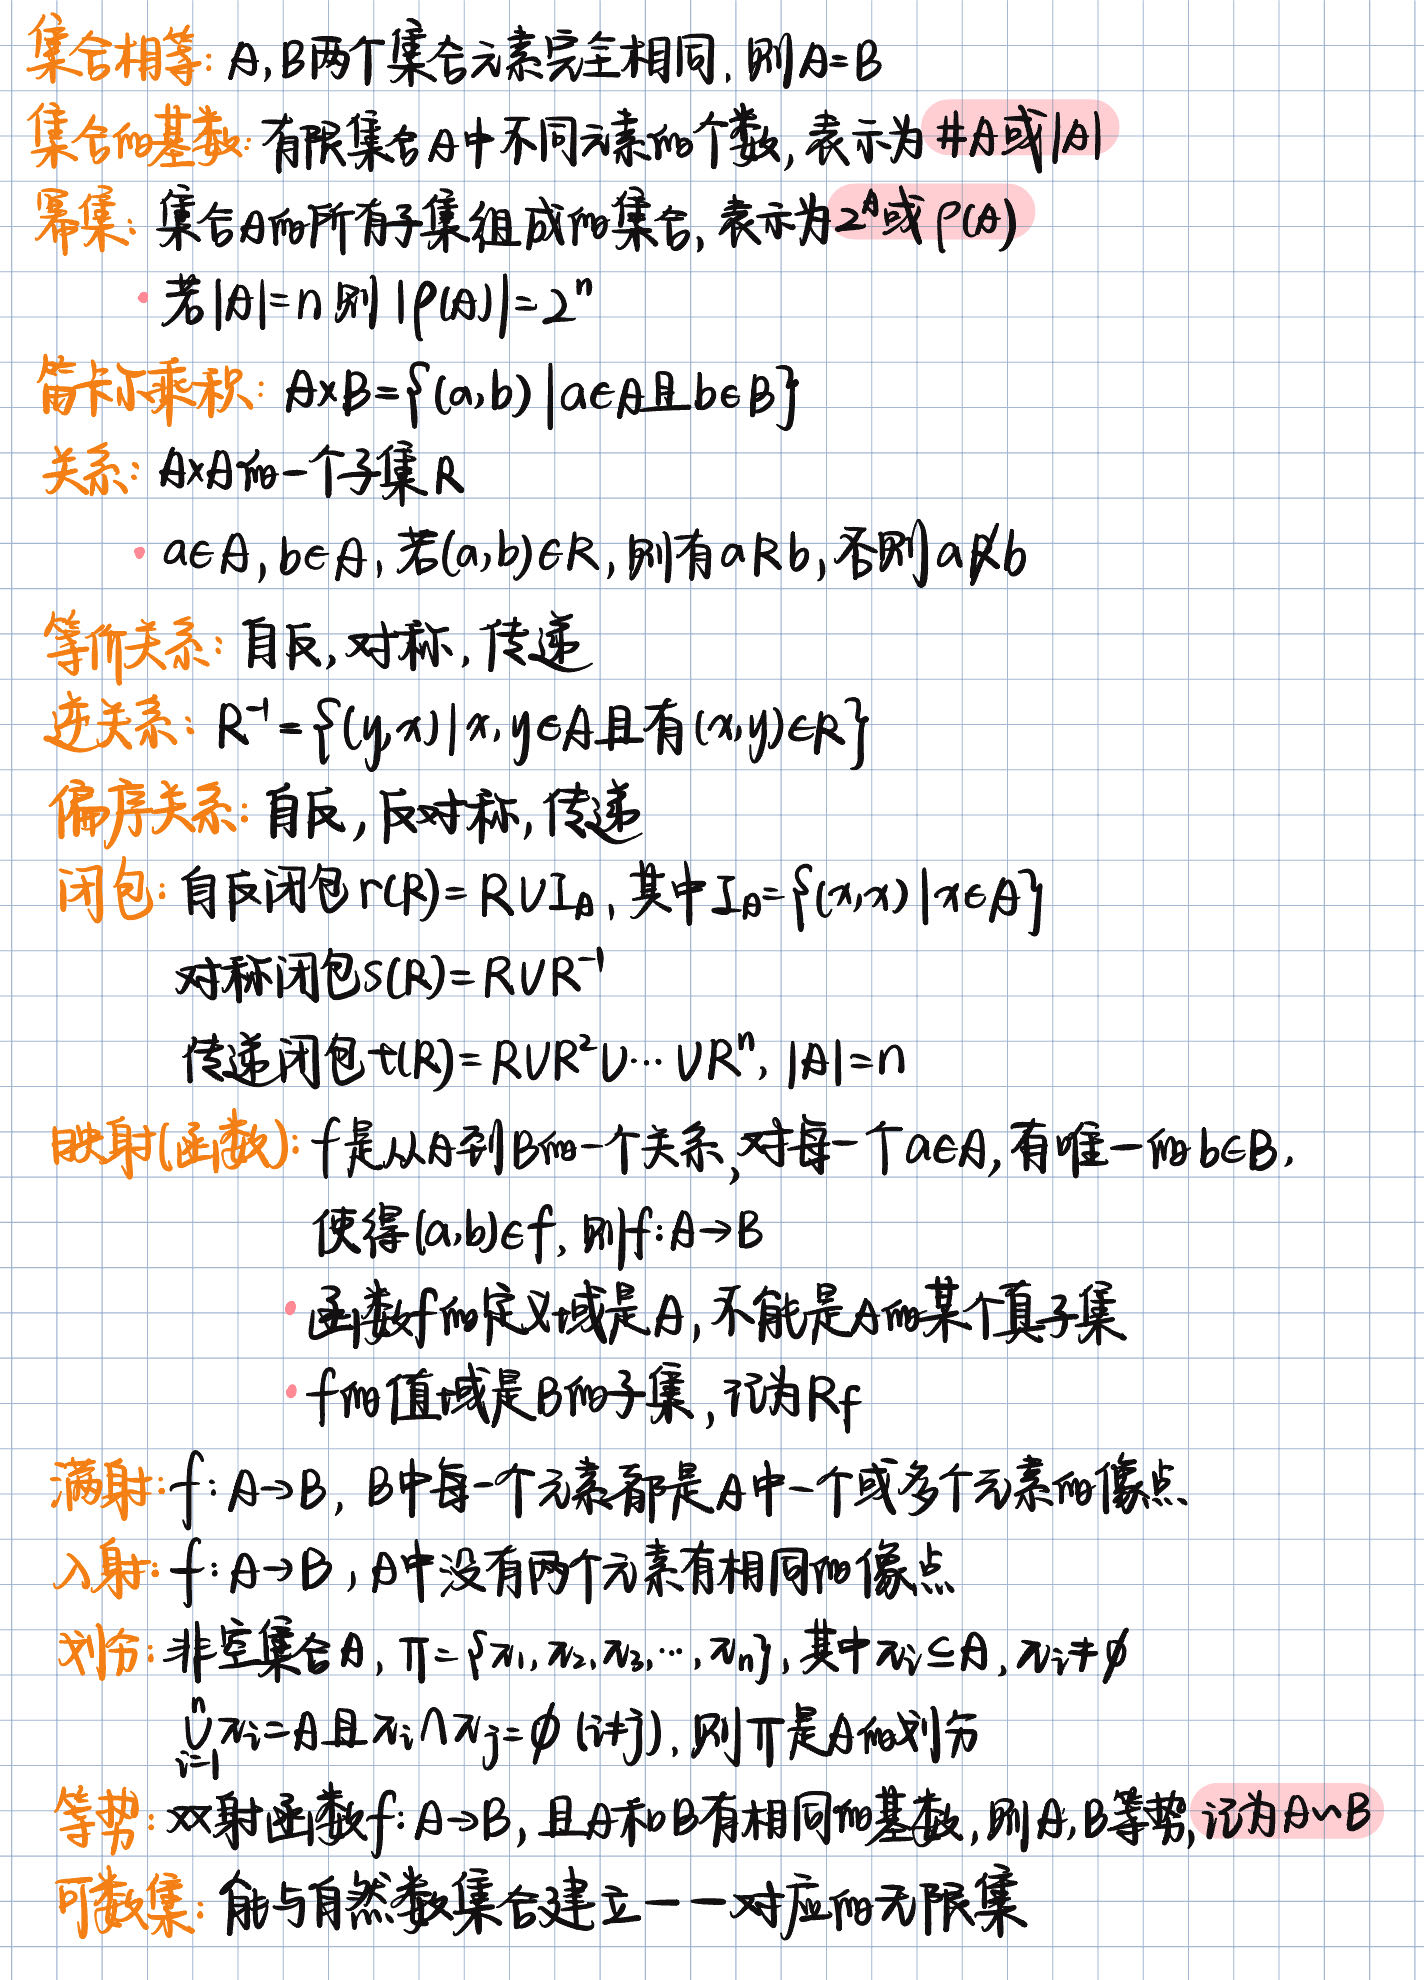 集合相等: A,B两个集合元素完全相同,则A=B
集合的基数: 有限集合A中不同元素的个数,表示为#A或|A|
幂集: 集合A的所有子集组成的集合,表示为2ᴬ或ρ(A)
· 若|A|=n则|ρ(A)|=2ⁿ
笛卡尔乘积: A×B={(a,b)|a∈A且b∈B}
关系: A×A的一个子集R
· a∈A,b∈A,若(a,b)∈R,则有aRb,否则aR̸b
等价关系: 自反,对称,传递
逆关系: R⁻¹={(y,x)|x,y∈A且有(x,y)∈R}
偏序关系: 自反,反对称,传递
闭包: 自反闭包r(R)=R∪I_A,其中I_A={(x,x)|x∈A}
对称闭包s(R)=R∪R⁻¹
传递闭包t(R)=R∪R²∪…∪Rⁿ,|A|=n
映射(函数): f是从A到B的一个关系,对每一个a∈A,有唯一的b∈B,
使得(a,b)∈f,则f:A→B
· 函数f的定义域是A,不能是A的某个真子集
· f的值域是B的子集,记为R_f
满射: f:A→B,B中每一个元素都是A中一个或多个元素的像点
入射: f:A→B,A中没有两个元素有相同的像点
划分: 非空集合A,π={π₁,π₂,π₃,…,πₙ},其中πᵢ⊆A,πᵢ≠∅
ⁿ∪ᵢ₌₁πᵢ=A且πᵢ∩πⱼ=∅(i≠j),则π是A的划分
等势: 双射函数f:A→B,且A和B有相同的基数,则A,B等势,记为A~B
可数集: 能与自然数集合建立一一对应的无限集